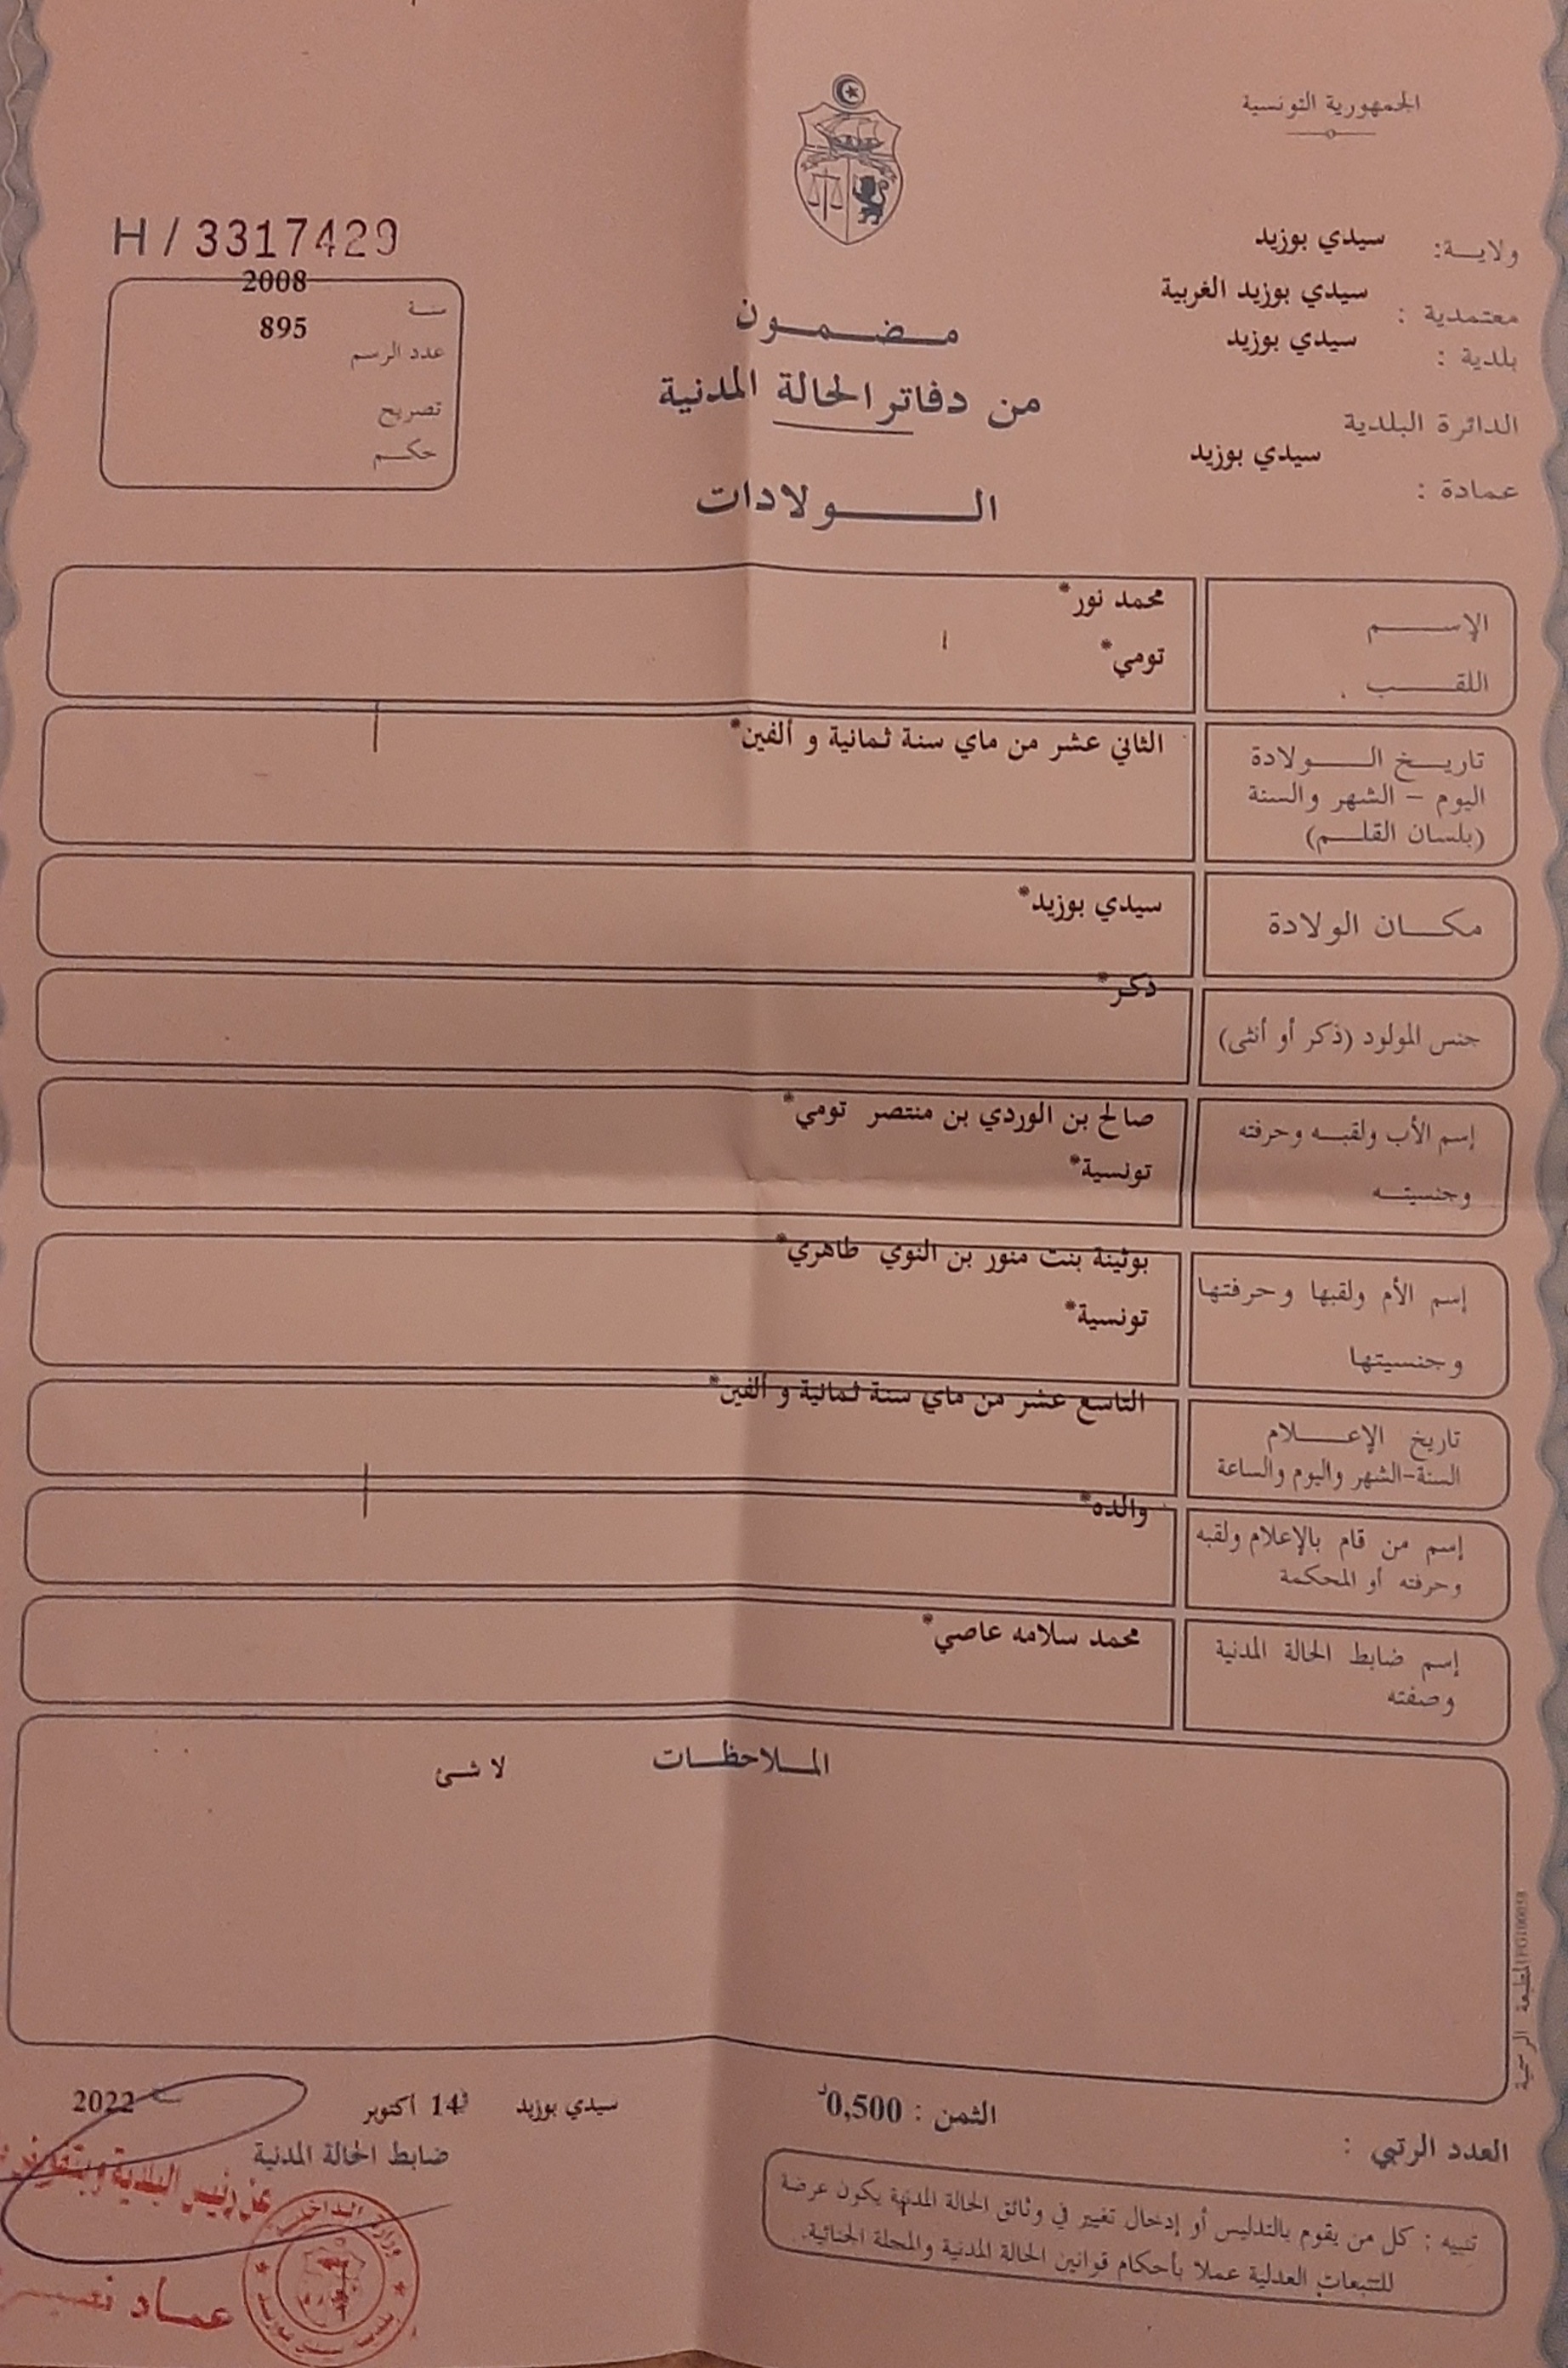 الجمهورية التونسية
ولايـة: سيدي بوزيد
معتمدية : سيدي بوزيد الغربية
بلدية : سيدي بوزيد
الدائرة البلدية
سيدي بوزيد
عمادة :
مـضـمـون
من دفاتر الحالة المدنية
الـولادات
H / 3317429
سنة 2008
عدد الرسم 895
تصريح
حكم
الإسـم محمد نور*
اللقـب تومي*
تاريـخ الـولادة الثاني عشر من ماي سنة ثمانية و ألفين*
اليوم – الشهر والسنة
(بلسان القلـم)
مكـان الولادة سيدي بوزيد*
جنس المولود (ذكر أو أنثى) ذكر*
إسم الأب ولقبـه وحرفته صالح بن الوردي بن منتصر تومي*
وجنسيتـه تونسية*
إسم الأم ولقبها وحرفتها بوثينة بنت منور بن النوي طاهري*
وجنسيتها تونسية*
تاريخ الإعـلام التاسع عشر من ماي سنة ثمانية و ألفين*
السنة-الشهر واليوم والساعة
إسم من قام بالإعلام ولقبه والده*
وحرفته أو المحكمة
إسم ضابط الحالة المدنية محمد سلامه عاصي*
وصفته
المـلاحظـات لا شئ
المطبعة الرسمية
العدد الرتبي :
الثمن : 0,500د
سيدي بوزيد في 14 اكتوبر سنة 2022
ضابط الحالة المدنية
عن رئيس البلدية وبتفويض
عمـاد
تنبيه : كل من يقوم بالتدليس أو إدخال تغيير في وثائق الحالة المدنية يكون عرضة
للتتبعات العدلية عملا بأحكام قوانين الحالة المدنية والمجلة الجنائية.